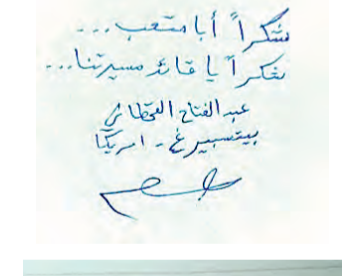 شكراً أبا متعب...
شكراً يا قائد مسيرتنا...
عبد الفتاح القحطاني
بيتسبيرغ - امريكا